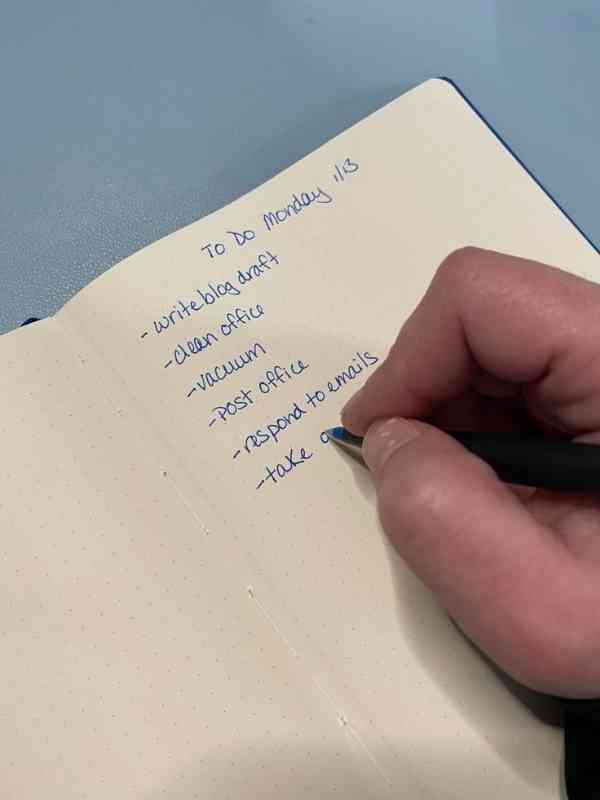 To Do Monday 1/13
- write blog draft
- clean office
- vacuum
- Post office
- respond to emails
- take